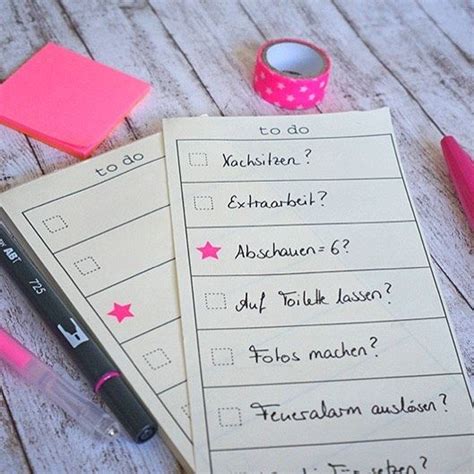 to do
to do
Nachsitzen?
Extraarbeit?
Abschauen = 6?
Auf Toilette lassen?
Fotos machen?
Feueralarm auslösen?
setzen?
ABT
725